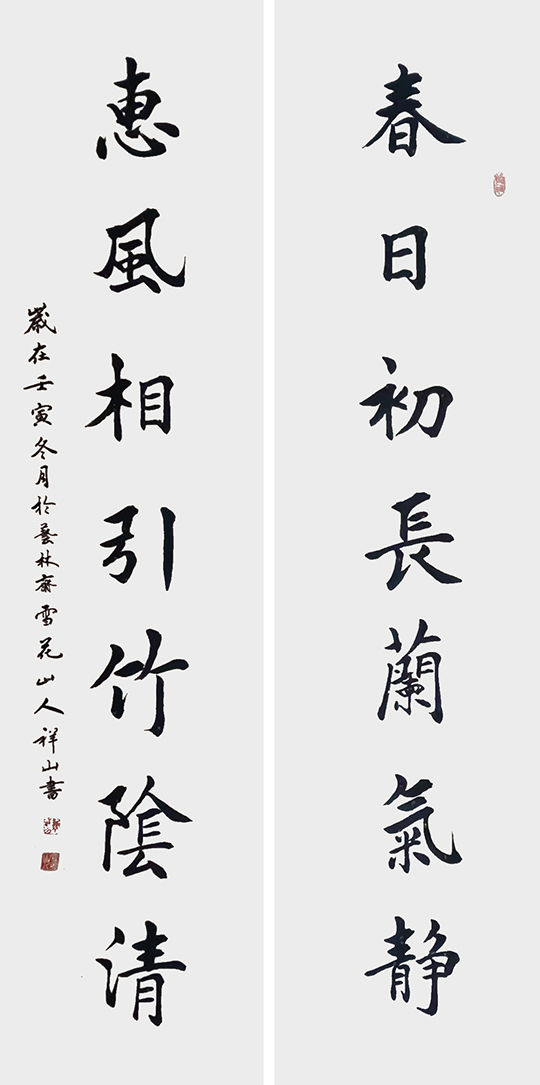 春日初長蘭氣静
惠風相引竹陰清
嵗在壬寅冬月於藝林齋雪花山人祥山書